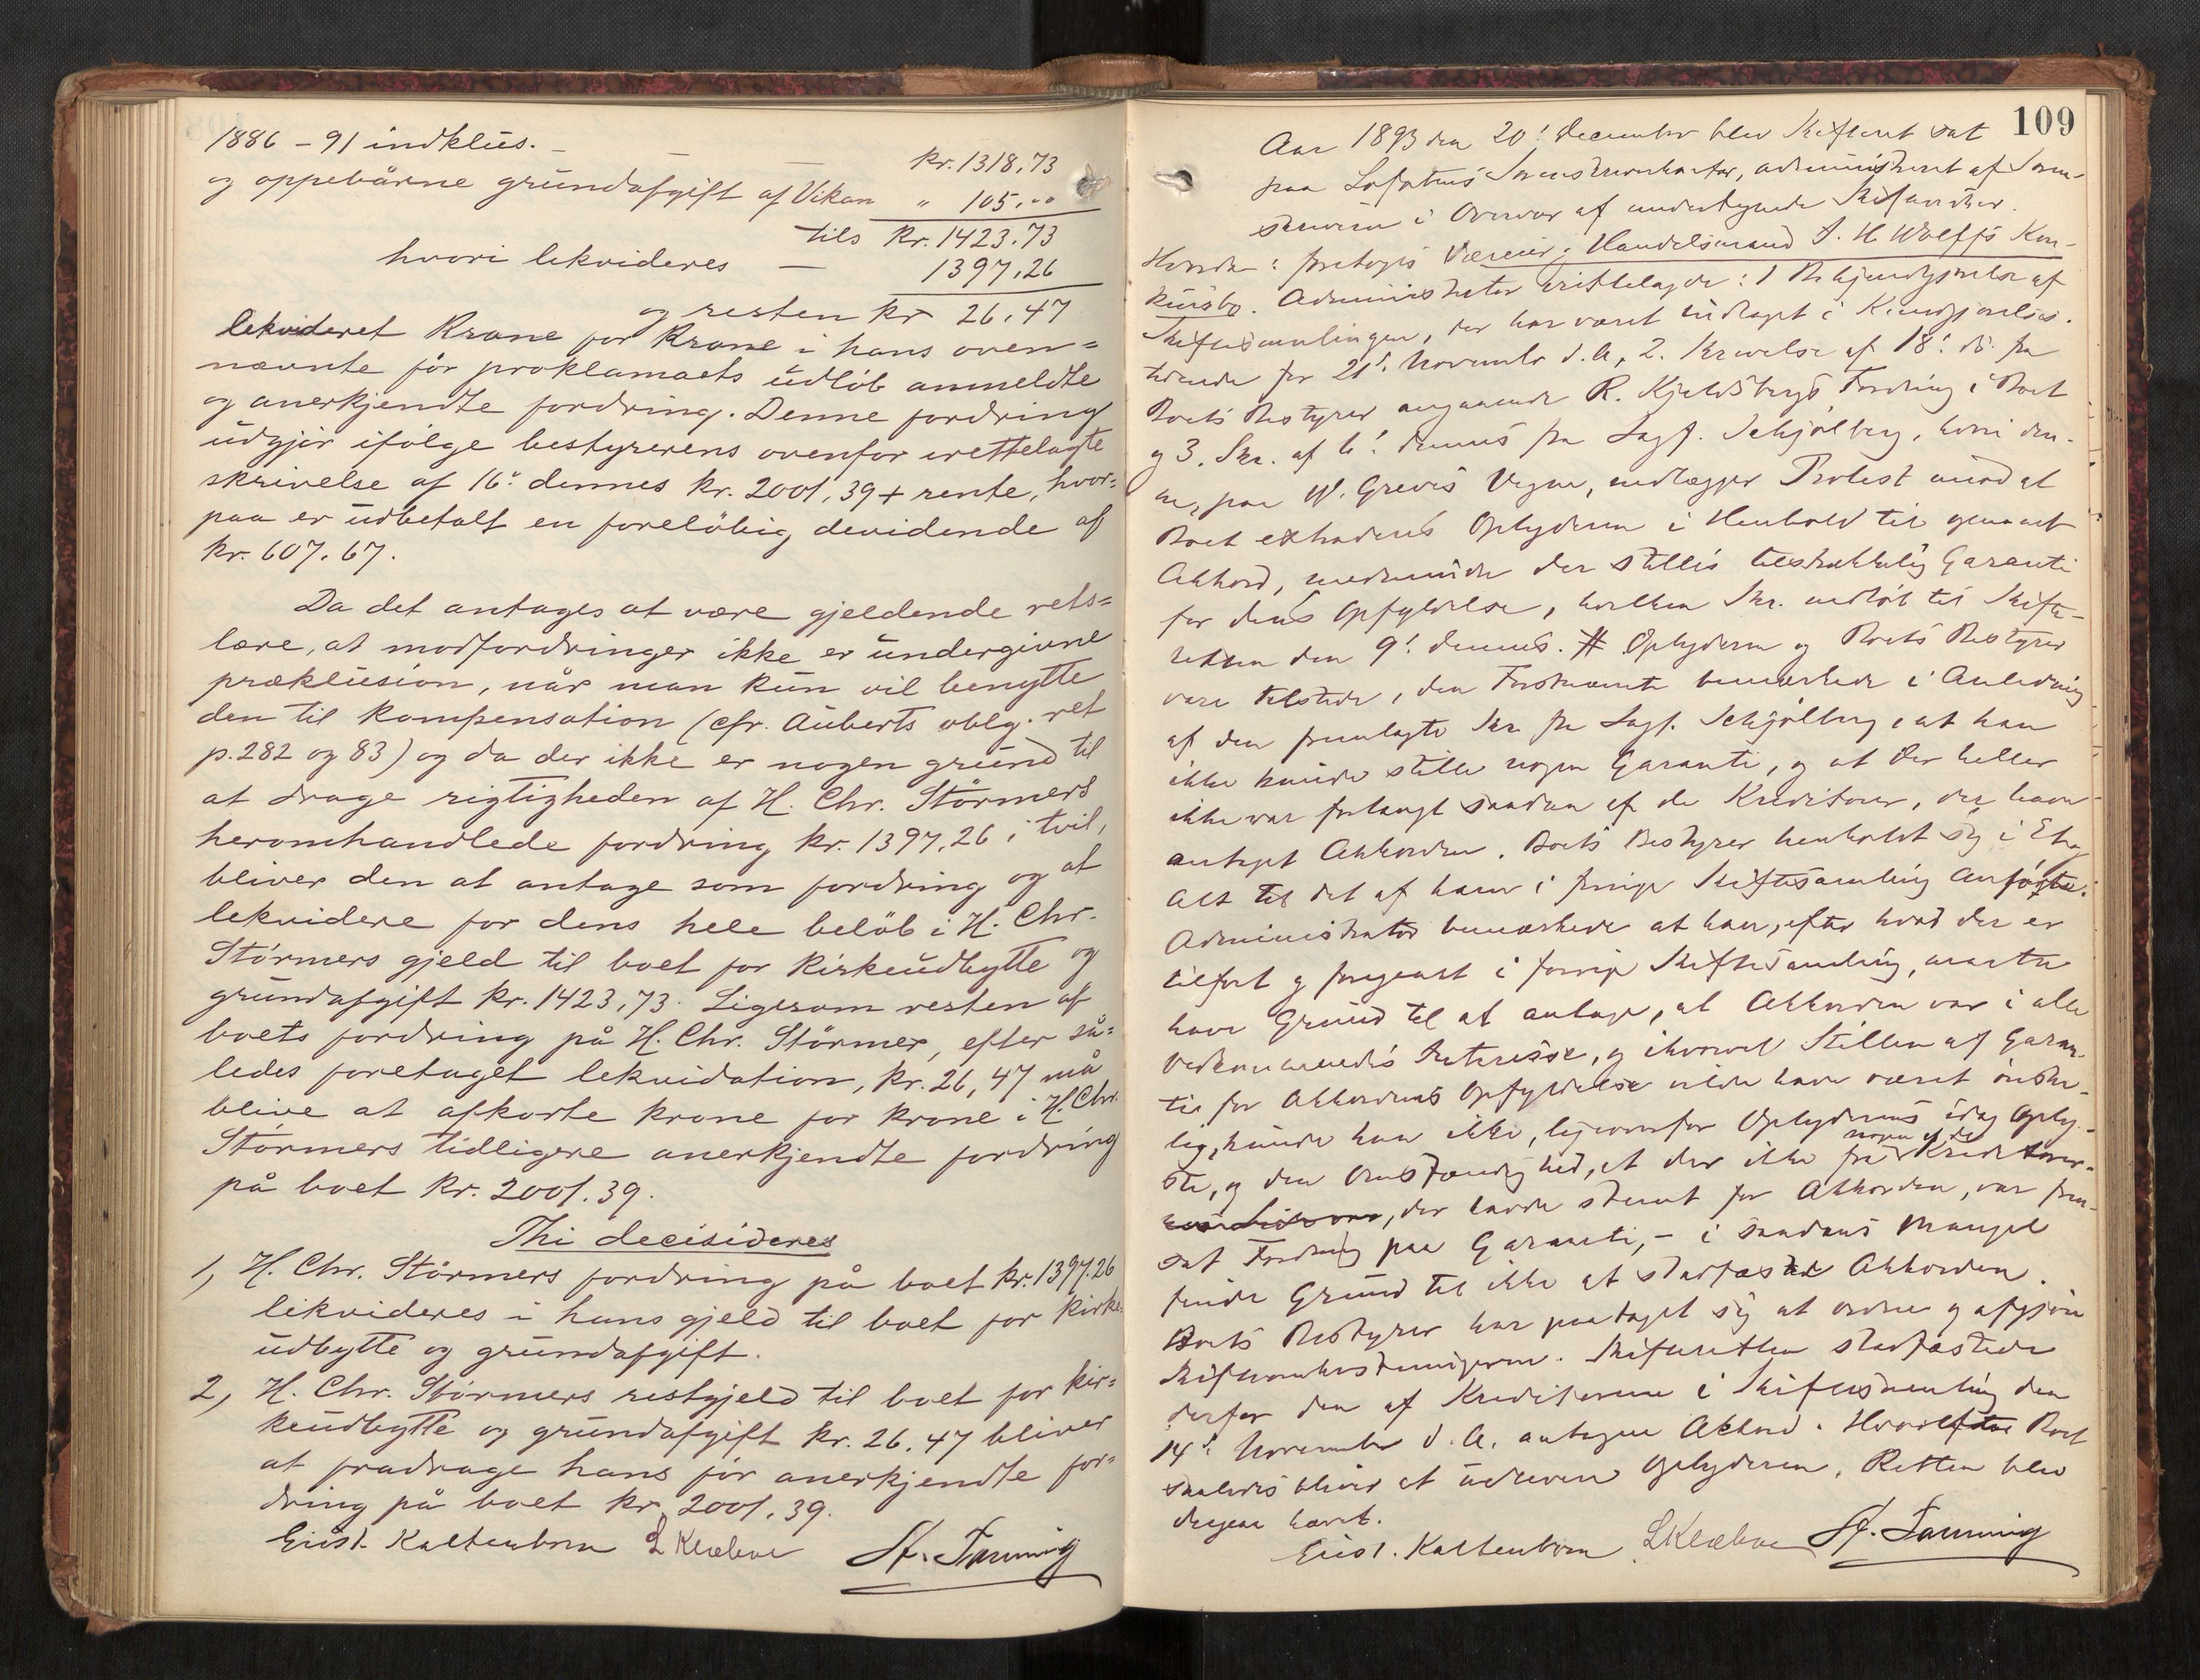 1886 – 91 indklus. – — — kr. 1318,73
og oppebårne grundafgift af Vikan " 105,00
tils kr. 1423,73
hvori lekvideres — 1397,26
og resten kr 26,47
lekvideret Krone for Krone i hans oven=
nævnte før proklamaets udløb anmeldte
og anerkjendte fordring. Denne fordring
udgjør ifølge bestyrerens ovenfor irettelagte
skrivelse af 16: dennes kr. 2001,39 + rente, hvor=
paa er udbetalt en foreløbig devidende af
kr. 607.67.
Da det antages at være gjeldende rets=
lære, at modfordringer ikke er undergivne
præklusion, når man kun vil benytte
den til kompensation (cfr. Auberts oblg. ret
p. 282 og 83) og da der ikke er nogen grund til
at drage rigtigheden af H. Chr. Störmers
heromhandlede fordring kr. 1397,26 i tvil,
bliver den at antage som fordring og at
lekvidere for dens hele beløb i H. Chr.
Störmers gjeld til boet for kirkeudbytte og
grundafgift kr. 1423,73. Ligesom resten af
boets fordring på H. Chr. Störmer, efter så=
ledes foretaget lekvidation, kr. 26,47 må
blive at afkorte krone for krone i H. Chr.
Störmers tidligere anerkjendte fordring
på boet kr. 2001.39.
Thi decisideres
1, H. Chr. Störmers fordring på boet kr. 1397.26
likvideres i hans gjeld til boet for kirke=
udbytte og grundafgift.
2, H. Chr. Störmers restgjeld til boet for kir=
keudbytte og grundafgift kr. 26.47 bliver
at fradrage hans før anerkjendte for=
dring på boet kr. 2001.39.
Kaltenborn L Klæboe
109
Aar 1893 den 20! December blev Skifteret sat
paa Lofotens Sorenskriverkontor, administreret af Soren-
skriveren i Overvær af undertegnede Skiftevidner.
Hvorda: foretoges Væreier, Handelsmand J. H. Wolffs Kon-
kursbo. Administrator irettelagde: 1 Bekjendtgjørelse af
Skiftesamlingen, der har været indtaget i Kundgjørelses-
tidende for 21! November d. A, 2. Skrivelse af 18! ds. fra
Boets Bestyrer angaaende R. Kjeldsbergs Fordring i Boet
og 3. Skr. af 6! dennes fra Sagf. Schjølberg, hvori den-
ne, paa W. Greves Vegne, nedlægger Protest mod at
Boet extraderes Opbyderen i Henhold til gjennemført
Akkord, medmindre der stilles tilstrækkelig Garanti
for dens Opfyldelse, hvilken Skr. indløb til Skifte-
retten den 9! dennes. # Opbyderen og Boets Bestyrer
vare tilstede, den Førstnævnte bemærkede i Anledning
af den fremlagte Skr. fra Sagf. Schjølberg, at han
ikke kunde stille nogen Garanti, og at der heller
ikke var forlangt saadan af de Kreditorer, der havde
antaget Akkorden. Boets Bestyrer henholdt sig i Et og
Alt til det af ham i forrige Skiftesamling Anførte.
Administrator bemærkede at han, efter hvad der er
tilført og foregaaet i forrige Skiftesamling, maatte
have Grund til at antage, at Akkorden var i alle
Vedkommendes Interesse, og ihvorvel Stillen af Garan-
ti for Akkordens Opfyldelse vilde have været ønske-
lig, kunde han ikke, ligeoverfor Opbyderens idag Oply-
ste, og den Omstændighed, at der ikke fra nogen af de Kreditorer,
der havde stemt for Akkorden, var frem-
sat Fordring paa Garanti, – i saadans Mangel
finde Grund til ikke at stadfæste Akkorden.
Boets Bestyrer har paataget sig at ordne og afgjøre
Skifteomkostningerne. Skifteretten stadfæstede
derfor den af Kreditorerne i Skiftesamling den
14! November d. A. antagne Akkord. Hvorefter Boet
saaledes bliver at udlevere Opbyderen. Retten blev
derpaa hævet.
Kaltenborn L Klæboe